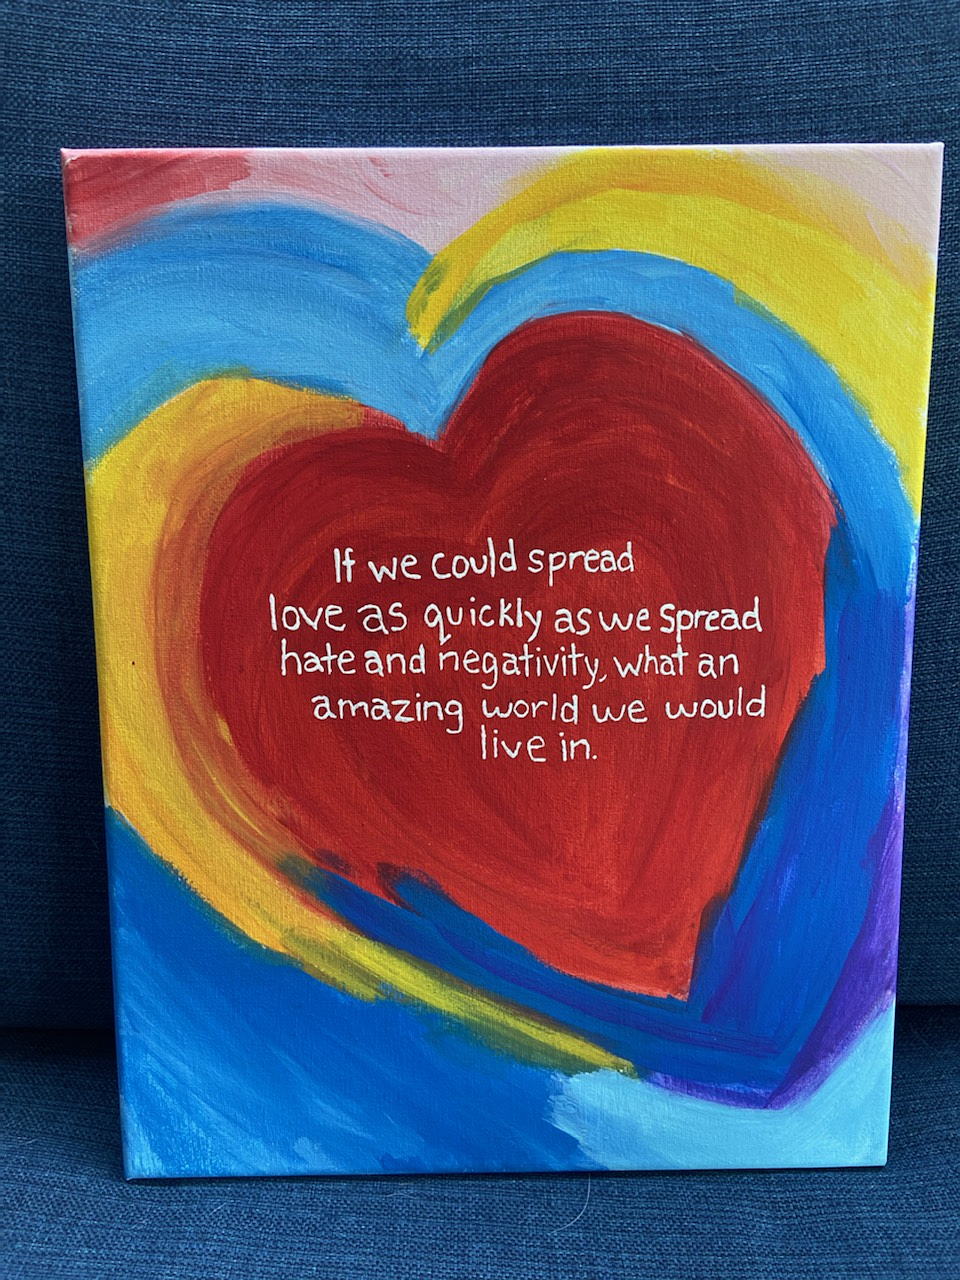 If we could spread
love as quickly as we spread
hate and negativity, what an
amazing world we would
live in.